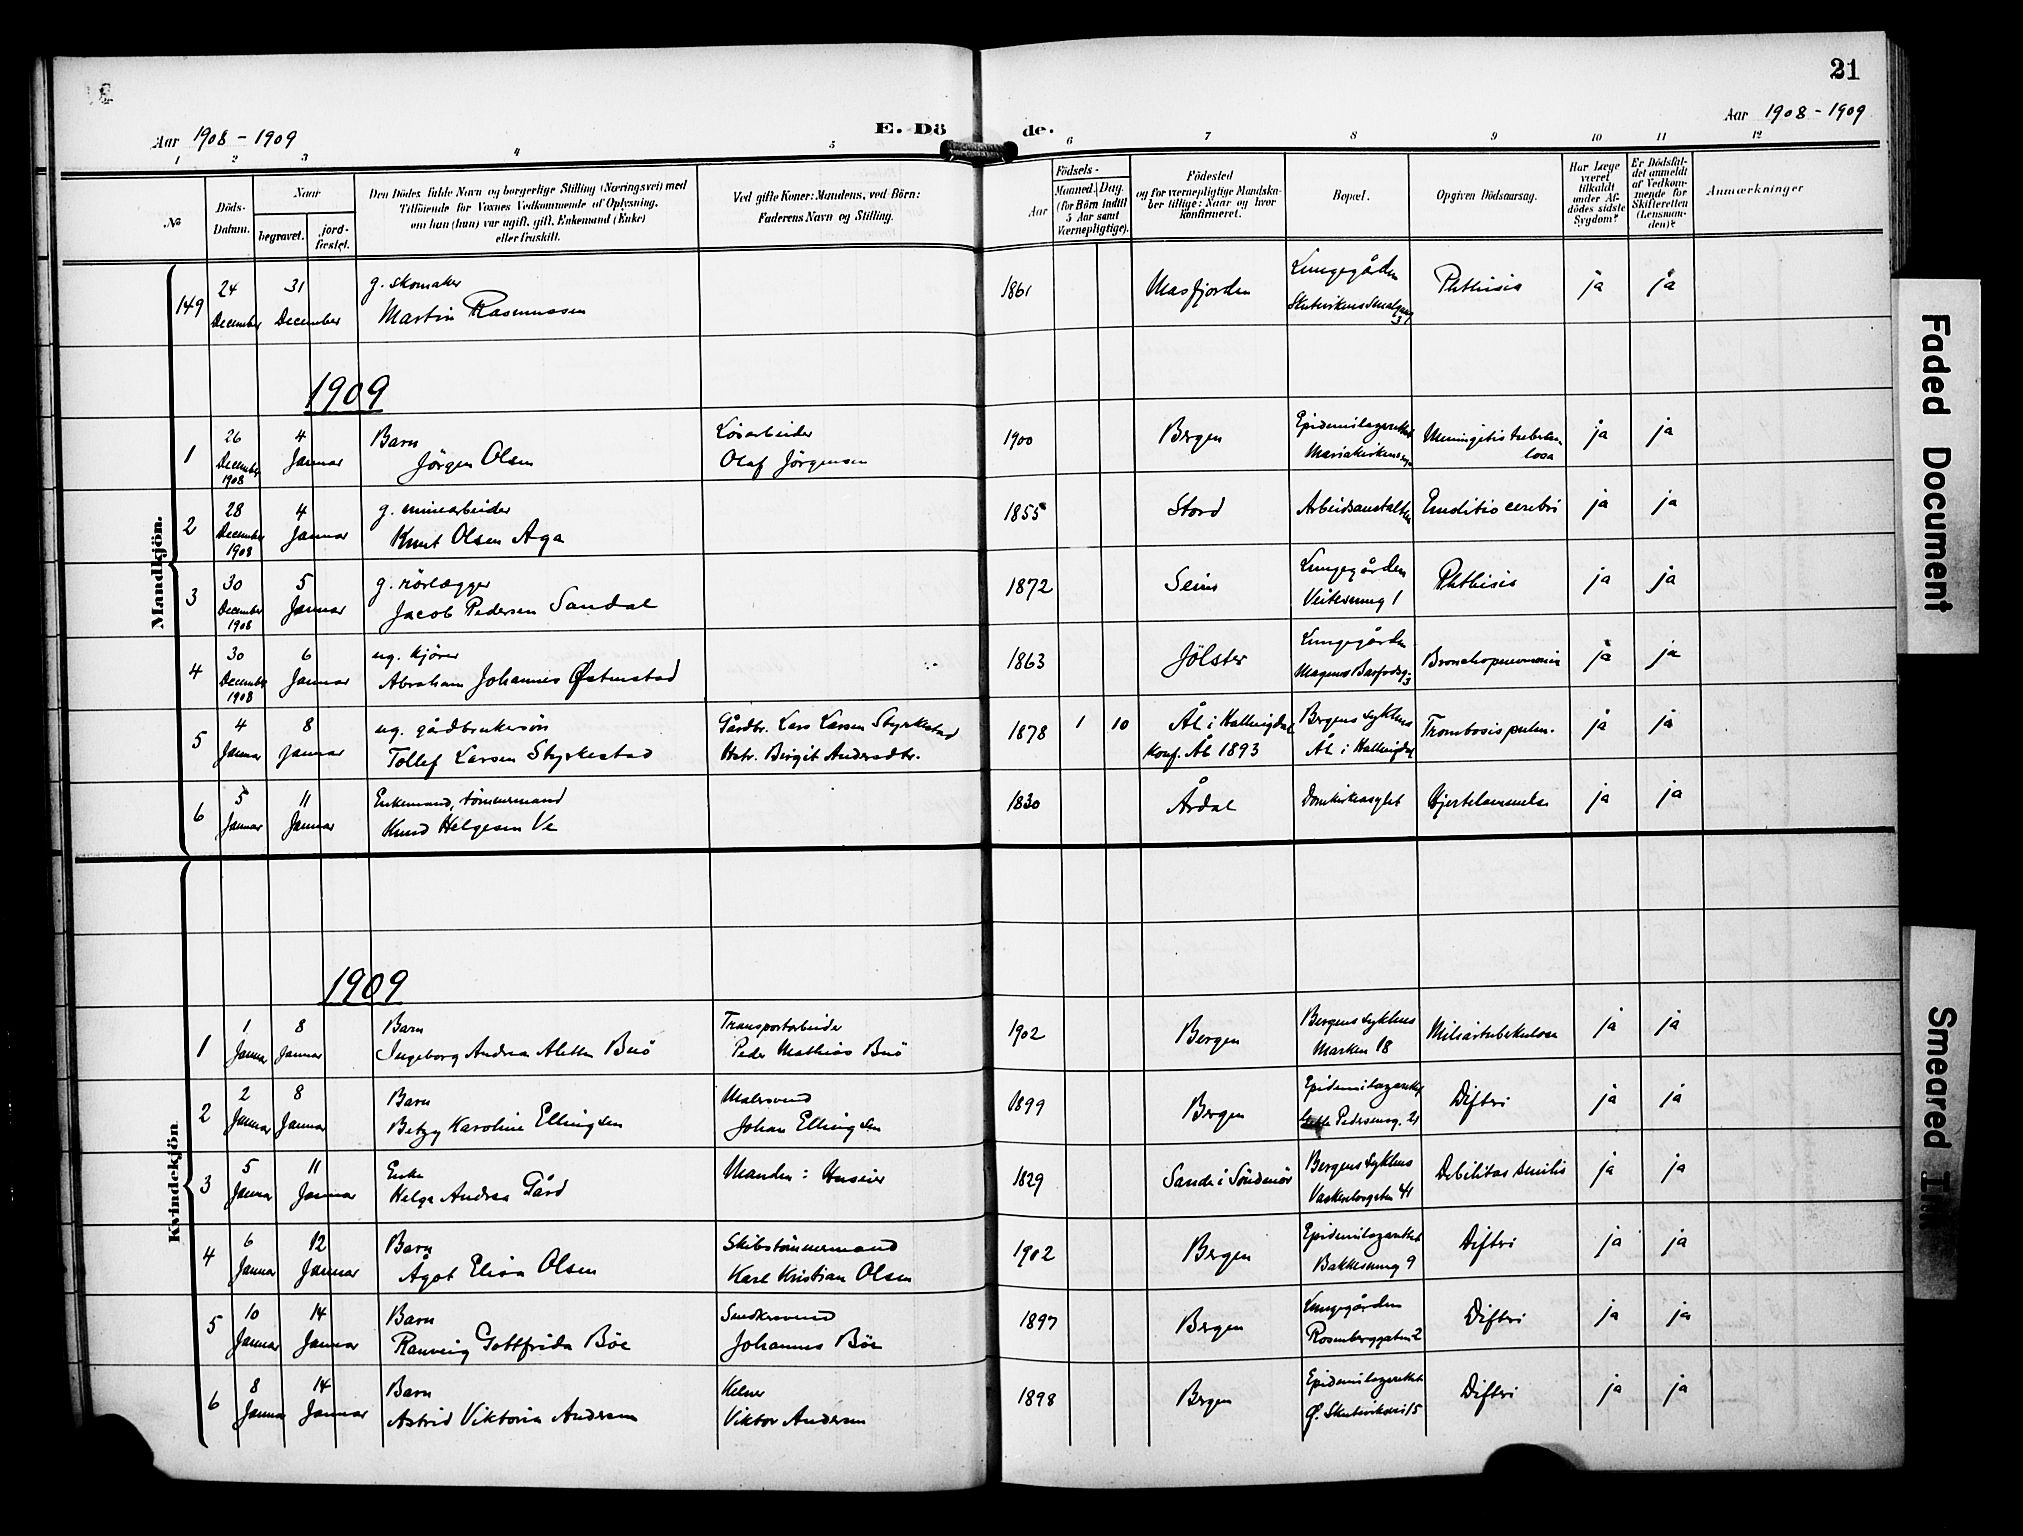 21
Aar 1908 - 1909
E. Döde.
Aar 1908 - 1909
1 2 3 4 5 6 7 8 9 10 11 12
No
Döds-
Datum.
Naar
begravet.
jord-
fæstet.
Den Dödes fulde Navn og borgerlige Stilling (Næringsvei) med
Tilföiende for Voxnes Vedkommende af Oplysning,
om han (hun) var ugift, gift, Enkemand (Enke)
eller fraskilt.
Ved gifte Koner: Mandens, ved Börn:
Faderens Navn og Stilling.
Födsels-
Aar
Maaned.
Dag.
(for Börn indtil
5 Aar samt
Værnepligtige).
Födested
og for værnepligtige Mandskaber tillige: Naar og hvor
konfirmeret.
Bopæl.
Opgiven Dödsaarsag.
Har Læge
været
tilkaldt
under Afdödes sidste
Sygdom?
Er Dödsfaldet anmeldt
af Vedkommende for
Skifteretten
(Lensmanden)?
Anmærkninger
Mandkjön.
149 24 December 31 December g. skomaker
Martin Rasmussen
1861 Masfjorden Lungegården
Phthisis ja ja
1909
1 26 December 1908 4 Januar Barn
Jörgen Olsen
Lösarbeider
Olaf Jörgensen
1900 Bergen Epidemilazarettet
Meningitis tuberku
losa ja ja
2 28 December 1908 4 Januar g. minearbeider
Knut Olsen Aga
1855 Stord Arbeidsanstalten Emolitio cerebri ja ja
3 30 December 1908 5 Januar g. rörlægger
Jacob Pedersen Sandal
1872 Seim Lungegården
Phthisis ja ja
4 30 December 1908 6 Januar ug. kjörer
Abraham Johannes Østenstad
1863 Jölster Lungegården
Bronchopneumonia ja ja
5 4 Januar 8 Januar ug. gårdbrukersön
Tollef Larsen Styrkestad
Gårdbr. Lars Larsen Styrkestad
Hstr. Birgit Andersdtr.
1878 1 10 Ål i Hallingdal
Konf. Ål 1893
Bergens sykehus
Ål i Hallingdal
Trombosis pulm. ja ja
6 5 Januar 11 Januar Enkemand, tömmermand
Knud Helgesen Ve
1830 Årdal Domkirkeasylet Hjertelammelse ja ja
Kvindekjön.
1909
1 1 Januar 8 Januar Barn
Ingeborg Andrea Aletta Buö
Transportarbeider
Peder Mathias Buö
1902 Bergen Bergens sykehus
Marken 18
Miliærtuberkulose ja ja
2 2 Januar 8 Januar Barn
Betzy Karoline Ellingsen
Malersvend
Johan Ellingsen
1899 Bergen Epidemilazarettet
Difteri ja ja
3 5 Januar 11 Januar Enke
Helga Andrea Gård
Manden: Huseier
1829 Sande i Söndmör Bergens sykehus
Vaskerelvsgaten 41
Debilitas senilis ja ja
4 6 Januar 12 Januar Barn
Ågot Elisa Olsen
Skibstömmermand
Karl Kristian Olsen
1902 Bergen Epidemilazarettet
Difteri ja ja
5 10 Januar 14 Januar Barn
Ranveig Gottfrida Böe
Snedkersvend
Johannes Böe
1897 Bergen Lungegården
Rosenberggaten 2
Difteri ja ja
6 8 Januar 14 Januar Barn
Astrid Viktoria Andersen
Kelner
Viktor Andersen
1898 Bergen Epidemilazarettet
Difteri ja ja
Faded Document
Smeared Ink